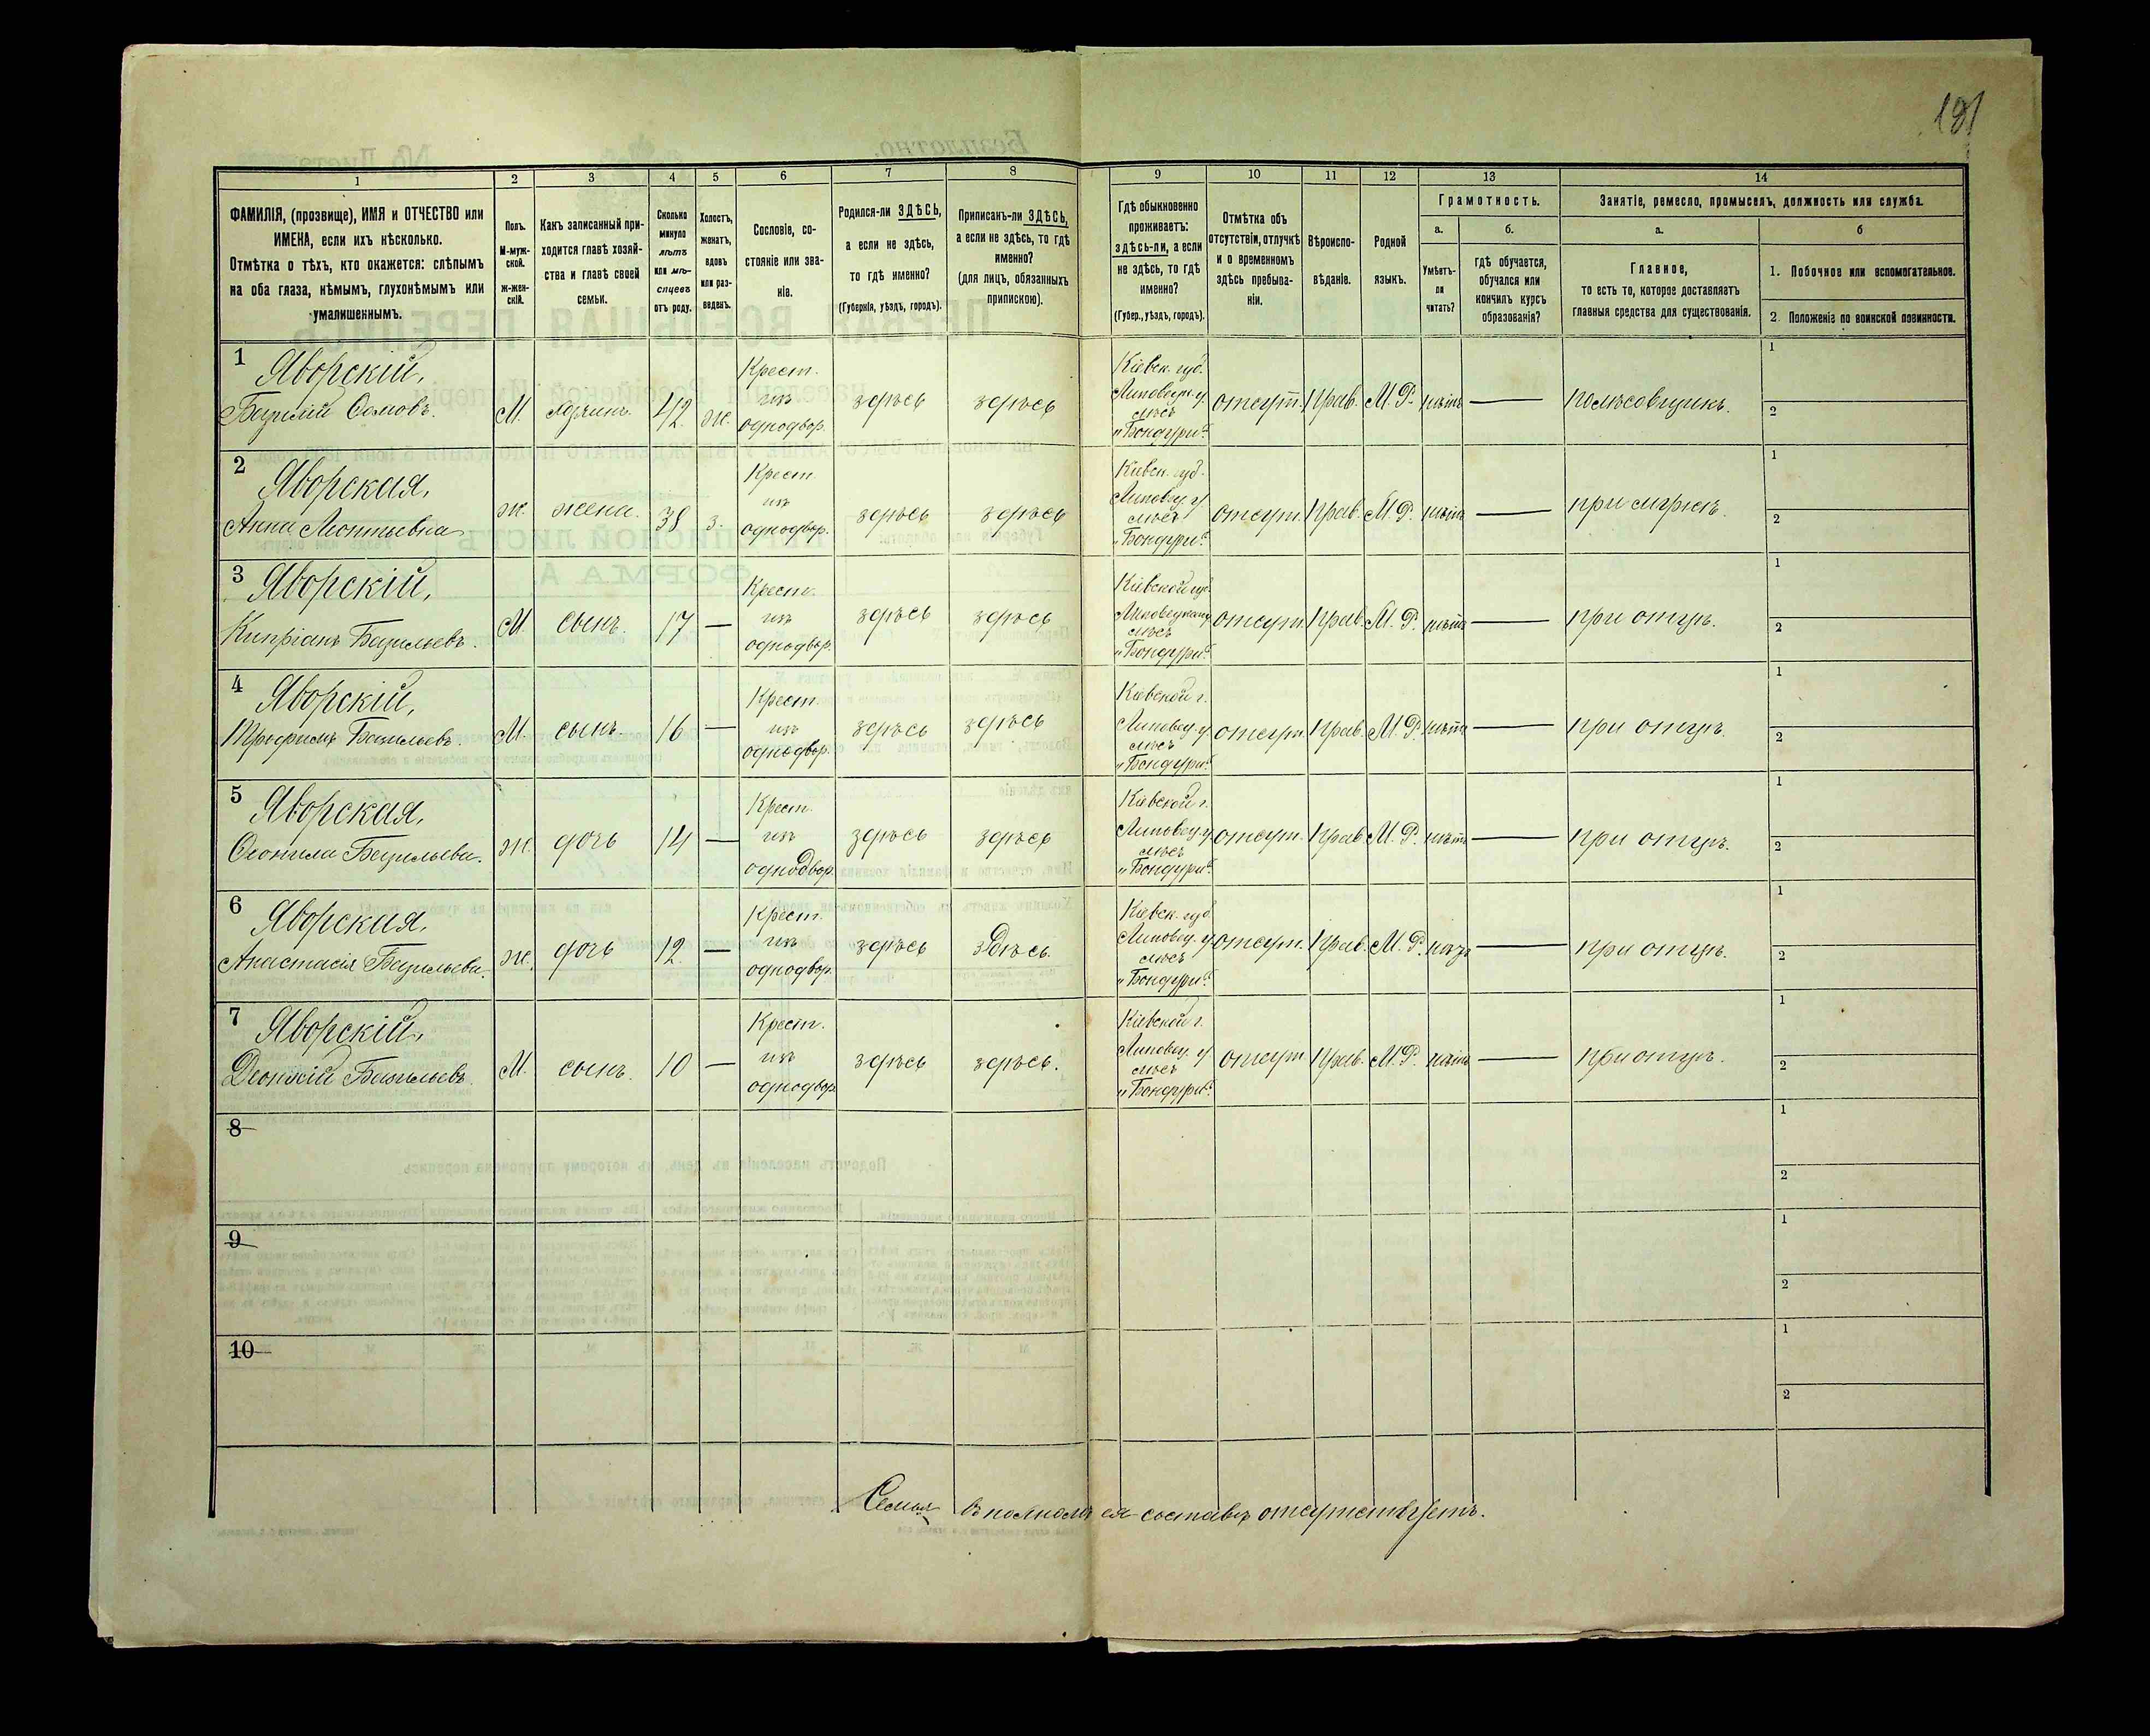 181
1 2 3 4 5 6 7 8 9 10 11 12 13 14
ФАМИЛІЯ, (прозвище), ИМЯ и ОТЧЕСТВО или
ИМЕНА, если ихъ нѣсколько.
Отмѣтка о тѣхъ, кто окажется: слѣпымъ
на оба глаза, нѣмымъ, глухонѣмымъ или
умалишеннымъ.
Полъ.
М-муж-
ской.
Ж-жен-
скій.
Какъ записанный при-
ходится главѣ хозяй-
ства и главѣ своей
семьи.
Сколько
минуло
лѣтъ
или мѣ-
сяцевъ
отъ роду.
Холостъ,
женатъ,
вдовъ
или раз-
веденъ.
Сословіе, со-
стояніе или зва-
ніе.
Родился-ли ЗДѢСЬ,
а если не здѣсь,
то гдѣ именно?
(Губернія, уѣздъ, городъ).
Приписанъ-ли ЗДѢСЬ,
а если не здѣсь, то гдѣ
именно?
(для лицъ, обязанныхъ
припискою).
Гдѣ обыкновенно
проживаетъ:
здѣсь-ли, а если
не здѣсь, то гдѣ
именно?
(Губер., уѣздъ, городъ).
Отмѣтка объ
отсутствіи, отлучкѣ
и о временномъ
здѣсь пребыва-
ніи.
Вѣроиспо-
вѣданіе.
Родной
языкъ.
Грамотность.
а.
Умѣетъ-
ли
читать?
б.
гдѣ обучается,
обучался или
кончилъ курсъ
образованія?
Занятіе, ремесло, промыселъ, должность или служба.
а.
Главное,
то есть то, которое доставляетъ
главныя средства для существованія.
б
1. Побочное или вспомогательное.
2. Положеніе по воинской повинности.
1 Яворскій,
Базилій М. 42 ж. Крест. изъ однодвор. здѣсь здѣсь Кіевск. губ. Липовецк. у. „Бондури“ отсут. Прав. М. Р. нѣтъ — полѣсовщикъ.
1
2
2 Яворская,
Анна Леонтьевна ж. жена. 38 з. Крест. изъ однодвор. здѣсь здѣсь Кіевск. губ. Липовец. у. „Бондури“ отсут. Прав. М. Р. нѣтъ — при мужѣ.
1
2
3 Яворскій,
Кипріанъ Базильевъ. М. сынъ. 17 — Крест. изъ однодвор. здѣсь здѣсь Кіевской губ. „Бондури“ отсут. Прав. М. Р. нѣтъ — при отцѣ.
1
2
4 Яворскій,
Базильевъ. М. сынъ. 16 — Крест. изъ однодвор. здѣсь здѣсь Кіевской г. Липовец. у. „Бондури“ отсут. Прав. М. Р. нѣтъ — при отцѣ.
1
2
5 Яворская,
Базильева. ж. дочь 14 — Крест. изъ однодвор. здѣсь здѣсь Кіевской г. Липовец. у. „Бондури“ отсут. Прав. М. Р. нѣтъ — при отцѣ.
1
2
6 Яворская,
Анастасія Базильева. ж. дочь 12 — Крест. изъ однодвор. здѣсь здѣсь. Кіевск. губ. Липовец. у. „Бондури“ отсут. Прав. М. Р. — при отцѣ.
1
2
7 Яворскій,
Діонисій Базильевъ. М. сынъ. 10 — Крест. изъ однодвор. здѣсь здѣсь. Кіевской г. Липовец. у. „Бондури“ отсут Прав. М. Р. нѣтъ — при отцѣ.
1
2
8
1
2
9
1
2
10
1
2
Семья въ полномъ ея составѣ отсутствуетъ.